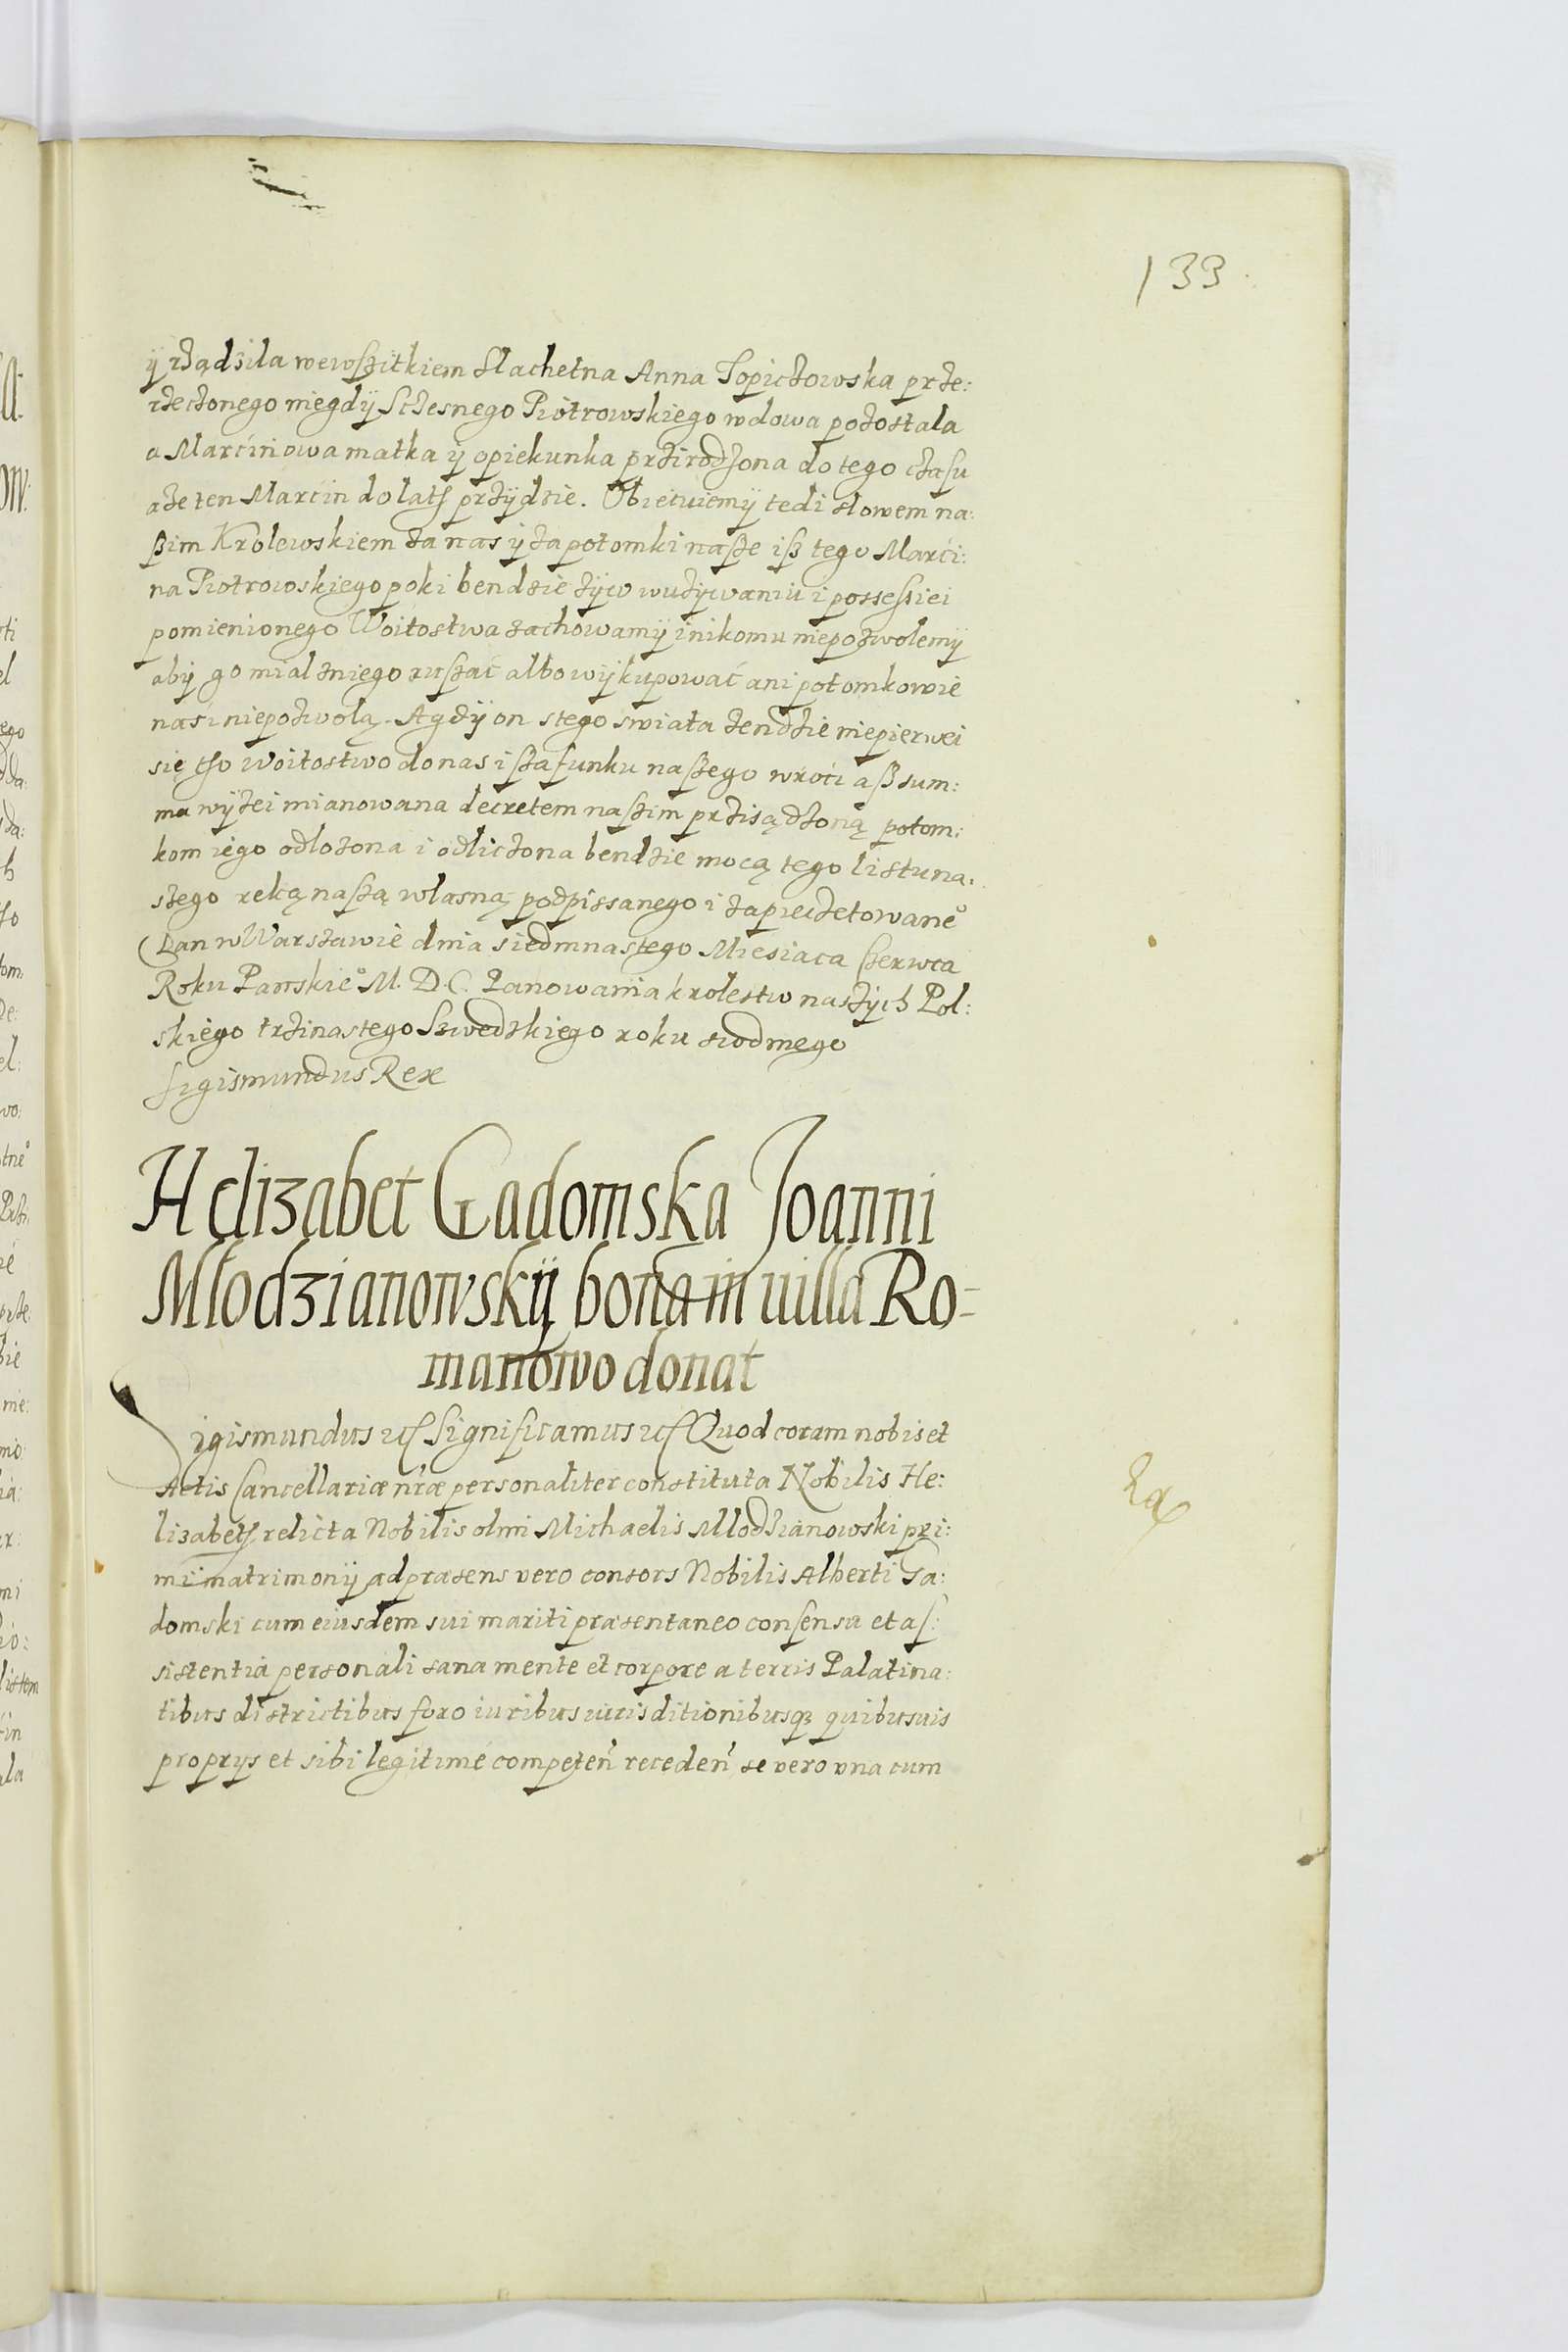 133
ÿ rządziła wewszitkiem slachetna Anna Sopiczowska prze:
rzeczonego niegdÿ Sczesnego Piotrowskiego wdowa pozostala
a Marcinowa matka ÿ opiekunka przirodzona do tego czasu
aze ten Marcin do lath przÿdzie. Obiecuiemÿ tedi slowem na:
ßim Krolewskiem za nas ÿ za potomki nasze iß tego Marci:
na Piotrowskiego poki bendzie zÿw wuzÿwaniu i possessiei
pomienionego Woitostwa zachowamÿ i nikomu niepozwolemÿ
abÿ go mial zniego ruszać albo wÿkupować ani potomkowie
nasi niepozwolą. A gdÿ on stego swiata zendzie niepierwei
się tho woitostwo do nas i szafunku naszego wroci aß sum:
ma wÿzei mianowana decretem naszim przisądzoną potom:
kom iego odlozona i odliczona bendzie mocą tego listu na:
szego reką naszą wlasną podpissanego i zapieczetowane°
Dan w Warszawie dnia siedmnastego Miesiaca Czerwca
Roku Panskie° M. D. C. Panowania krolestw naszÿch Pol:
skiego trzinastego Szwedzkiego roku siodmego
Sigismundus Rex
Helizabet Gadomska Joanni
Młodzianowskÿ bona in uilla Ro=
manowo donat
Sigismundus etc Significamus etc Quod coram nobis et
Actis Cancellariæ nræ personaliter constituta Nobilis He:
lizabeth relicta Nobilis olmi Michaelis Mlodzianowski pri:
mi matrimonÿ ad præsens vero consors Nobilis Alberti Ga:
domski cum eiusdem sui mariti præsentaneo consensu et as:
sistentia personali sana mente et corpore a terris Palatina:
tibus districtibus foro iuribus iurisditionibusqꝫ quibusuis
proprÿs et sibi legitimé competen̄ receden̄ se vero vna cum